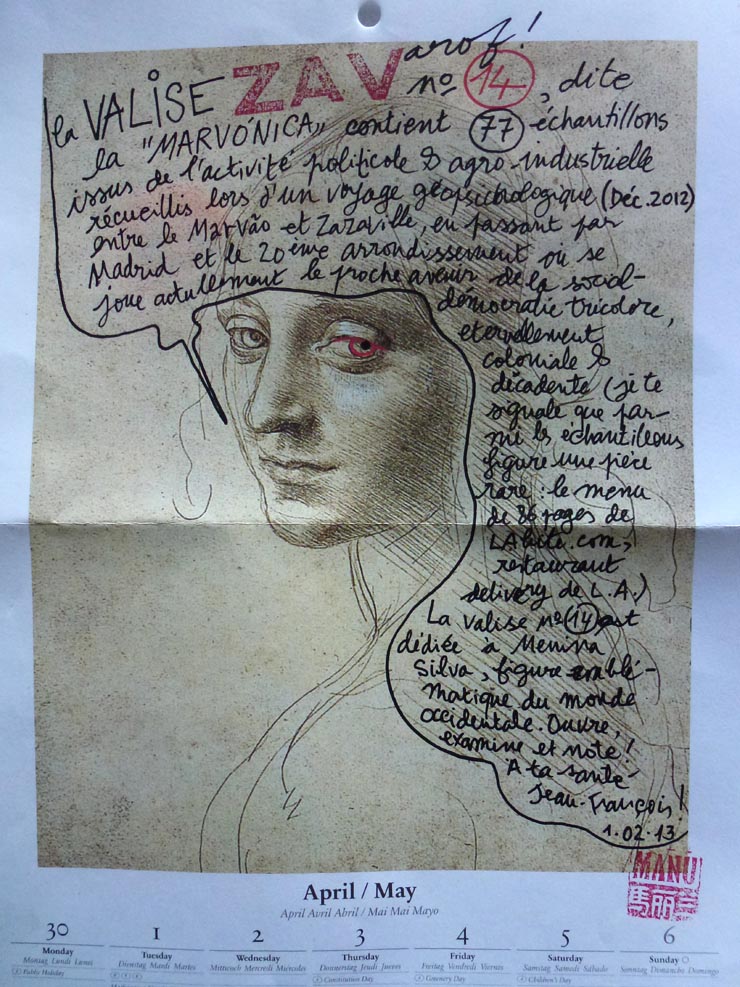 la VALISE ZAVarof!
nº 14, dite
la "MARVÓNICA" contient 77 échantillons
issus de l'activité politicole & agro-industrielle
récueillis lors d'un voyage géopsichologique (Déc. 2012)
entre le Marvão et Zazaville, en passant par
Madrid et le 20ème arrondissement où se
joue actuellement le proche avenir de la social-
démocratie tricolore,
eternellement
coloniale &
décadente (je te
signale que par-
mi les échantillons
figure une pièce
rare : le menu
de 86 pages de
LAbite.com,
restaurant
delivery de L.A.)
La valise nº 14 est
dédiée à Menina
Silva, figure emblé-
matique du monde
occidentale. Ouvre,
examine et note!
A ta santé
Jean-François!
1.02.13
MANÚ
April / May
April Avril Abril / Mai Mai Mayo
30 1 2 3 4 5 6
Monday Tuesday Wednesday Thursday Friday Saturday Sunday
Montag Lundi Lunes Dienstag Mardi Martes Mittwoch Mercredi Miércoles Donnerstag Jeudi Jueves Freitag Vendredi Viernes Samstag Samedi Sábado Sonntag Dimanche Domingo
Public Holiday Constitution Day Children's Day